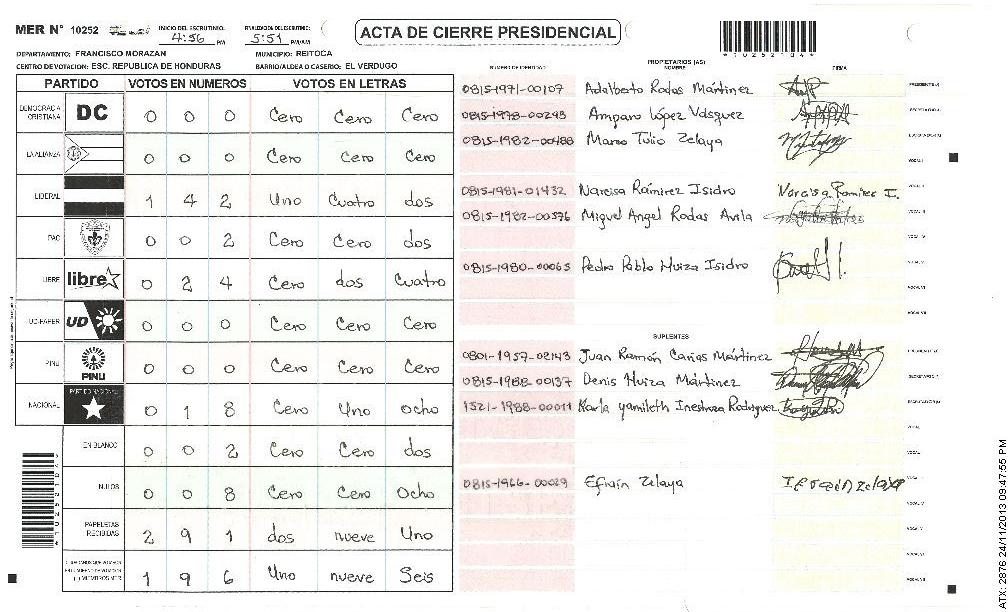 MER N° 10252
INICIO DEL ESCRUTINIO: 4:56 PM
FINALIZACION DEL ESCRUTINIO: 5:51 PM/AM
ACTA DE CIERRE PRESIDENCIAL
*10252104*
DEPARTAMENTO: FRANCISCO MORAZAN
MUNICIPIO: REITOCA
CENTRO DE VOTACION: ESC. REPUBLICA DE HONDURAS
BARRIO/ALDEA O CASERIO: EL VERDUGO
PARTIDO VOTOS EN NUMEROS VOTOS EN LETRAS
DEMOCRACIA CRISTIANA DC 0 0 0 Cero Cero Cero
LA ALIANZA 0 0 0 Cero Cero Cero
LIBERAL 1 4 2 Uno Cuatro dos
PAC 0 0 2 Cero Cero dos
LIBRE libre 0 2 4 Cero dos Cuatro
UD-FAPER UD 0 0 0 Cero Cero Cero
PINU PINU 0 0 0 Cero Cero Cero
NACIONAL PARTIDO NACIONAL 0 1 8 Cero Uno Ocho
EN BLANCO 0 0 2 Cero Cero dos
NULOS 0 0 8 Cero Cero Ocho
PAPELETAS RECIBIDAS 2 9 1 dos nueve Uno
1 9 6 Uno nueve Seis
NUMERO DE IDENTIDAD PROPIETARIOS (AS) NOMBRE FIRMA
0815-1971-00107 Adalberto Rodas Mártinez PRESIDENTE (A)
0815-1978-00293 Amparo López Vásquez SECRETARIO (A)
0815-1982-00488 Marco Tulio Zelaya ESCRUTADOR (A)
VOCAL I
0815-1981-01432 Narcisa Ramirez Isidro Narcisa Ramirez I. VOCAL II
0815-1982-00576 Miguel Angel Rodas Avila VOCAL III
VOCAL IV
0815-1980-00065 Pedro Pablo Muiza Isidro VOCAL V
VOCAL VI
VOCAL VII
SUPLENTES
0801-1957-02143 Juan Ramón Carias Mártinez PRESIDENTE (A)
0815-1988-00137 Denis Muiza Mártinez SECRETARIO (A)
1521-1988-00011 Karla yamileth Inestroza Rodriguez ESCRUTADOR (A)
VOCAL I
VOCAL II
0815-1966-00029 Efraín Zelaya
VOCAL IV
VOCAL V
VOCAL VI
VOCAL VII
ATX: 2876 24/11/2013 09:47:55 PM